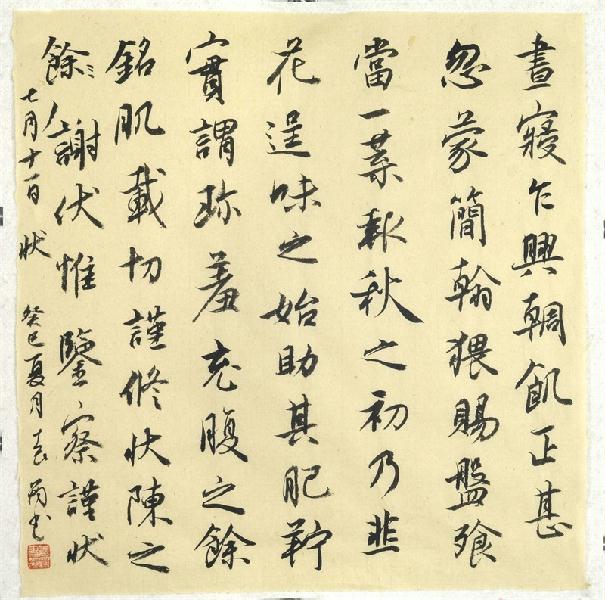 晝寢乍興輖飢正甚
忽蒙簡翰猥賜盤飧
當一葉報秋之初乃韭
花逞味之始助其肥羜
實謂珎羞充腹之餘
銘肌載切謹修狀陳之
餘謝伏惟鑒察謹狀
七月十一日狀 癸巳夏月书